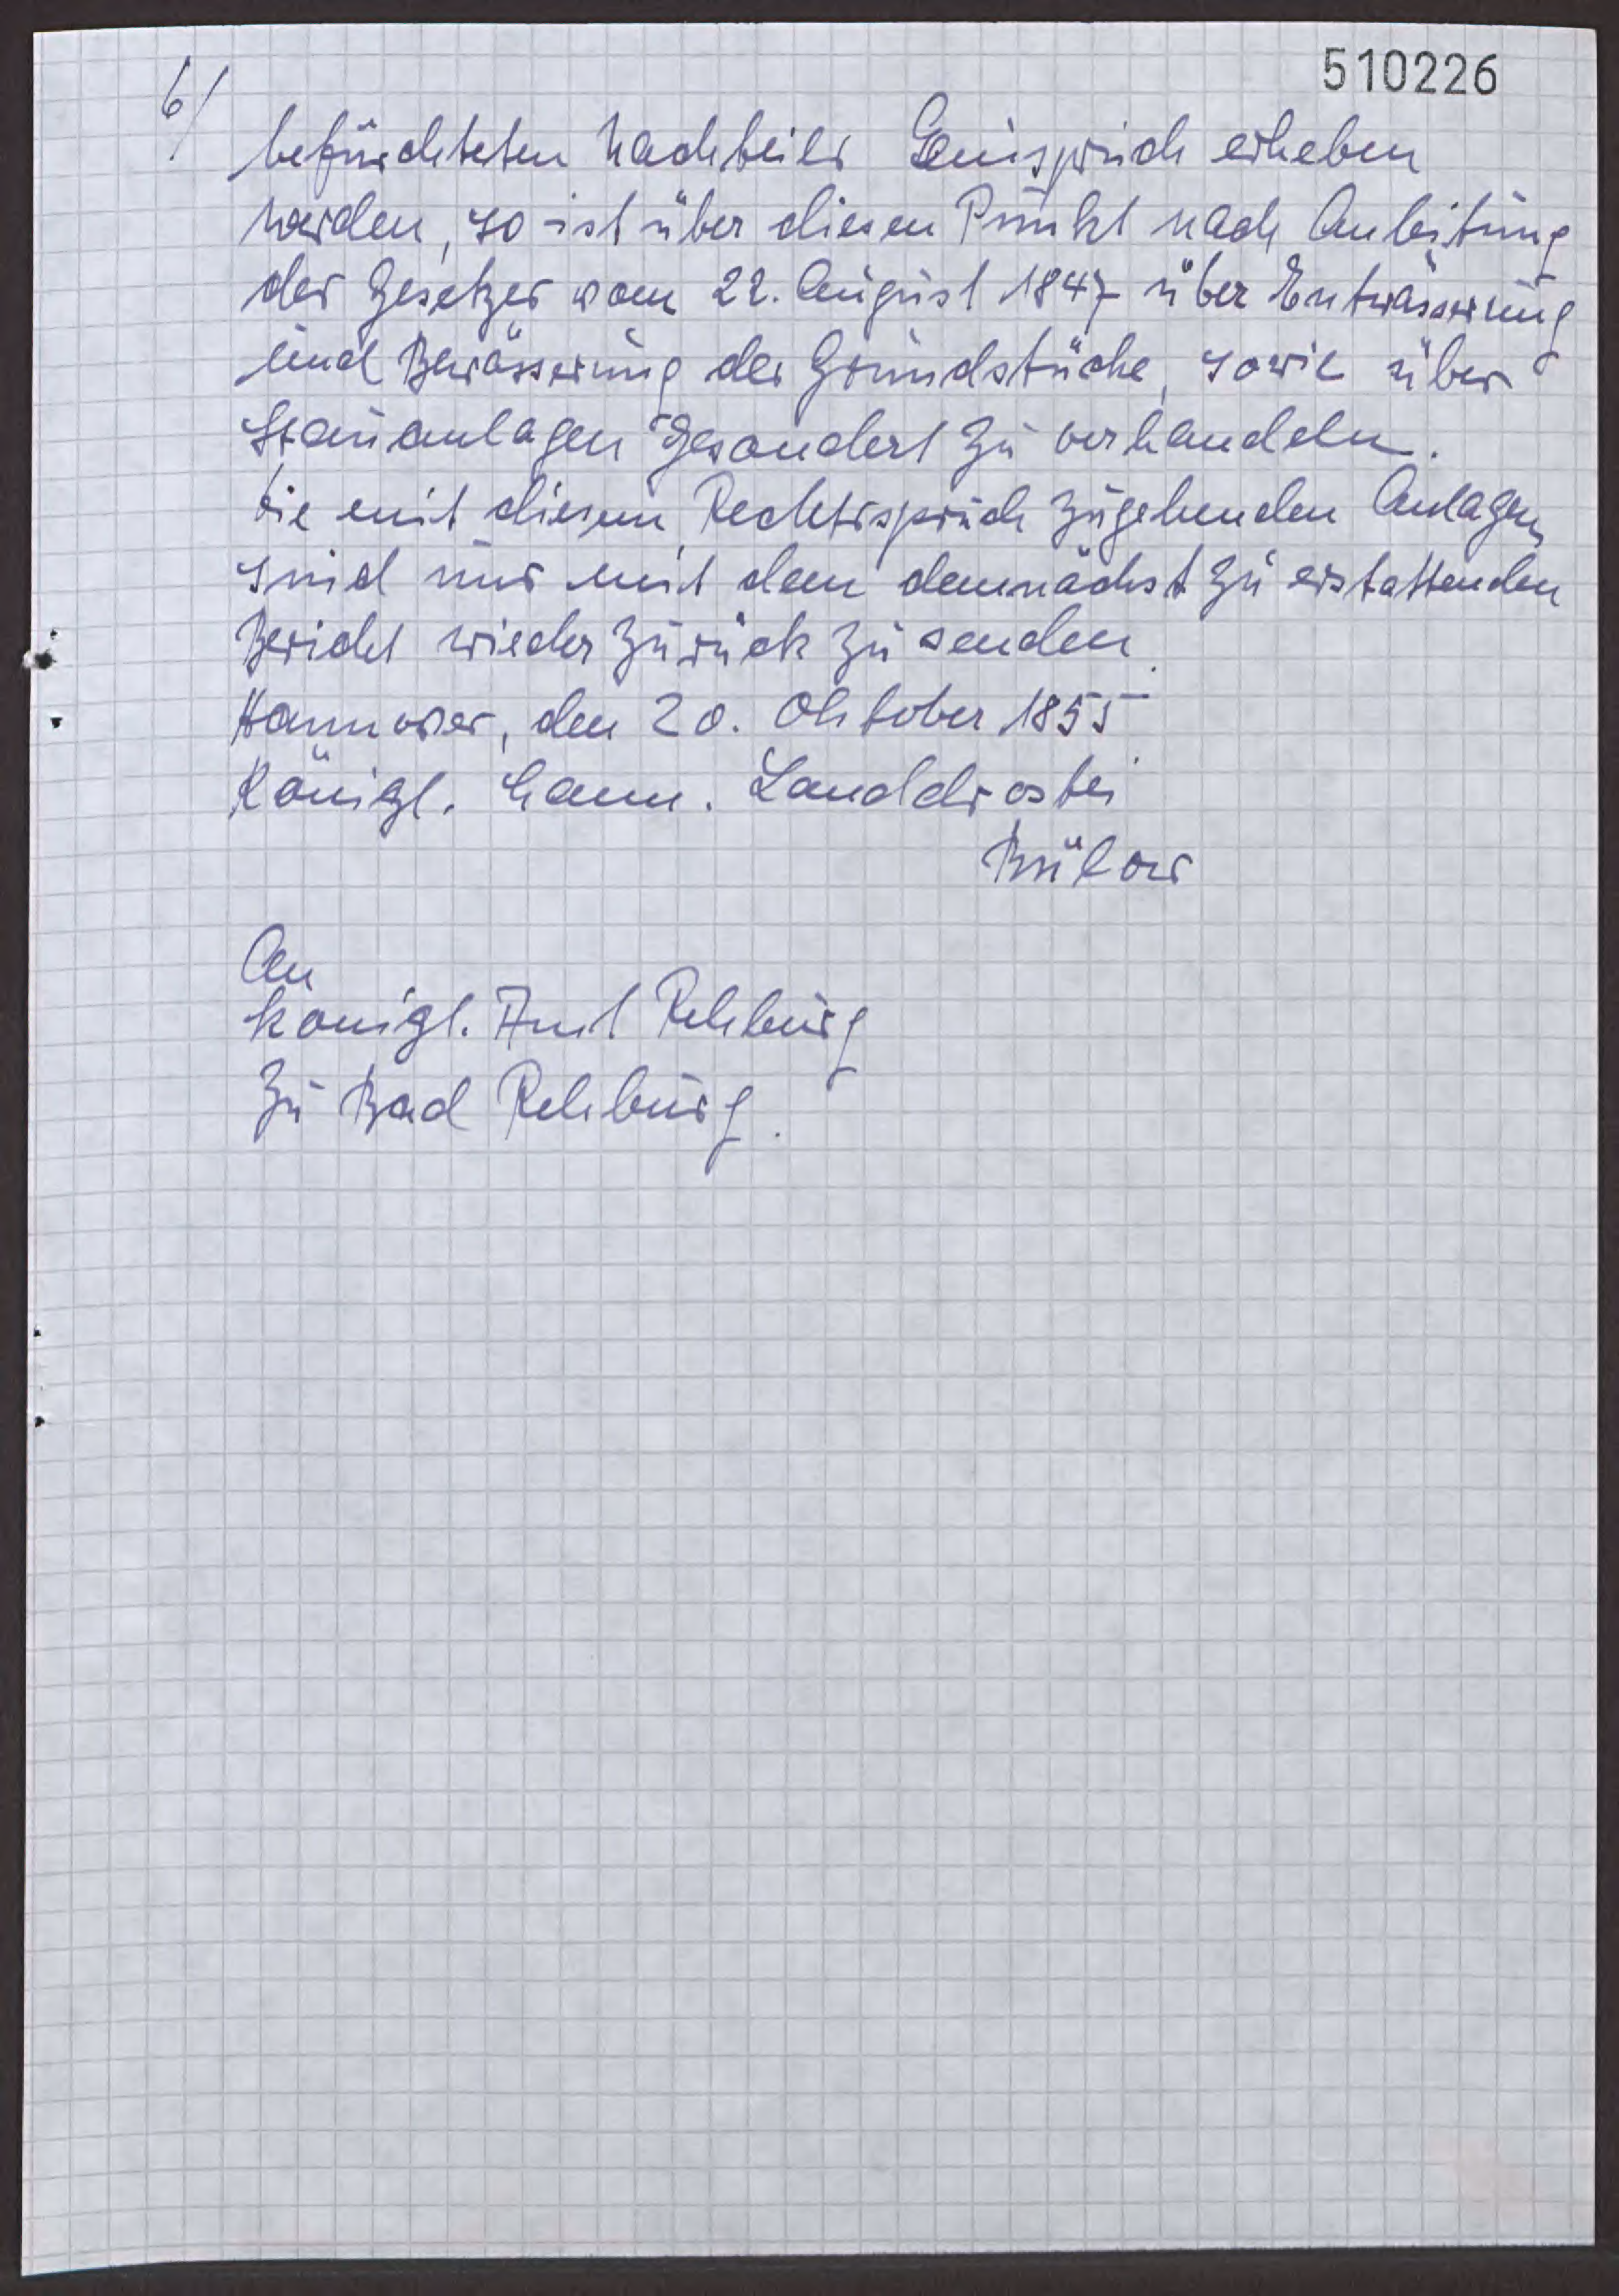 510226
6/
befürchteten Nachteils Einspruch erheben
werden, so ist über diesen Punkt nach Anleitung
des Gesetzes vom 22. August 1847 über Entwässerung
und Bewässerung der Grundstücke, sowie über
Stauanlagen gesondert zu verhandeln.
Die mit diesem Rechtsspruch zugehenden Anlagen
sind mir mit dem demnächst zu erstattenden
Bericht wieder zurück zu senden.
Hannover, den 20. Oktober 1855
Königl. hann. Landdrostei
Bülow
An
königl. Amt Rehburg
zu Bad Rehburg.